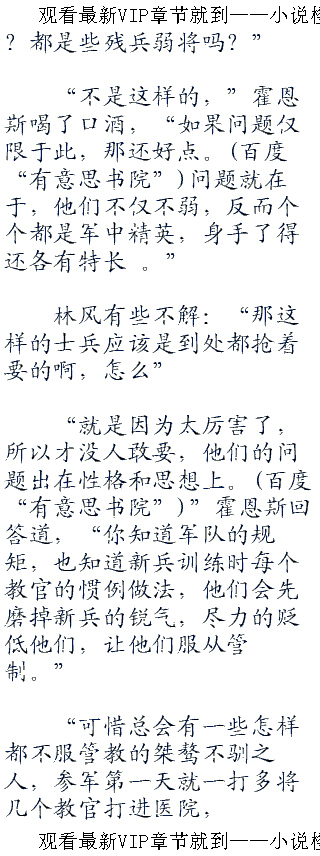 观看最新VIP章节就到——小说
？都是些残兵弱将吗？”
“不是这样的，”霍恩
斯喝了口酒，“如果问题仅
限于此，那还好点。(百度
“有意思书院”)问题就在
于，他们不仅不弱，反而个
个都是军中精英，身手了得
还各有特长 。”
林风有些不解：“那这
样的士兵应该是到处都抢着
要的啊，怎么”
“就是因为太厉害了，
所以才没人敢要，他们的问
题出在性格和思想上。(百度
“有意思书院”)”霍恩斯回
答道，“你知道军队的规
矩，也知道新兵训练时每个
教官的惯例做法，他们会先
磨掉新兵的锐气，尽力的贬
低他们，让他们服从管
制。”
“可惜总会有一些怎样
都不服管教的桀骜不驯之
人，参军第一天就一打多将
几个教官打进医院，
观看最新VIP章节就到——小说